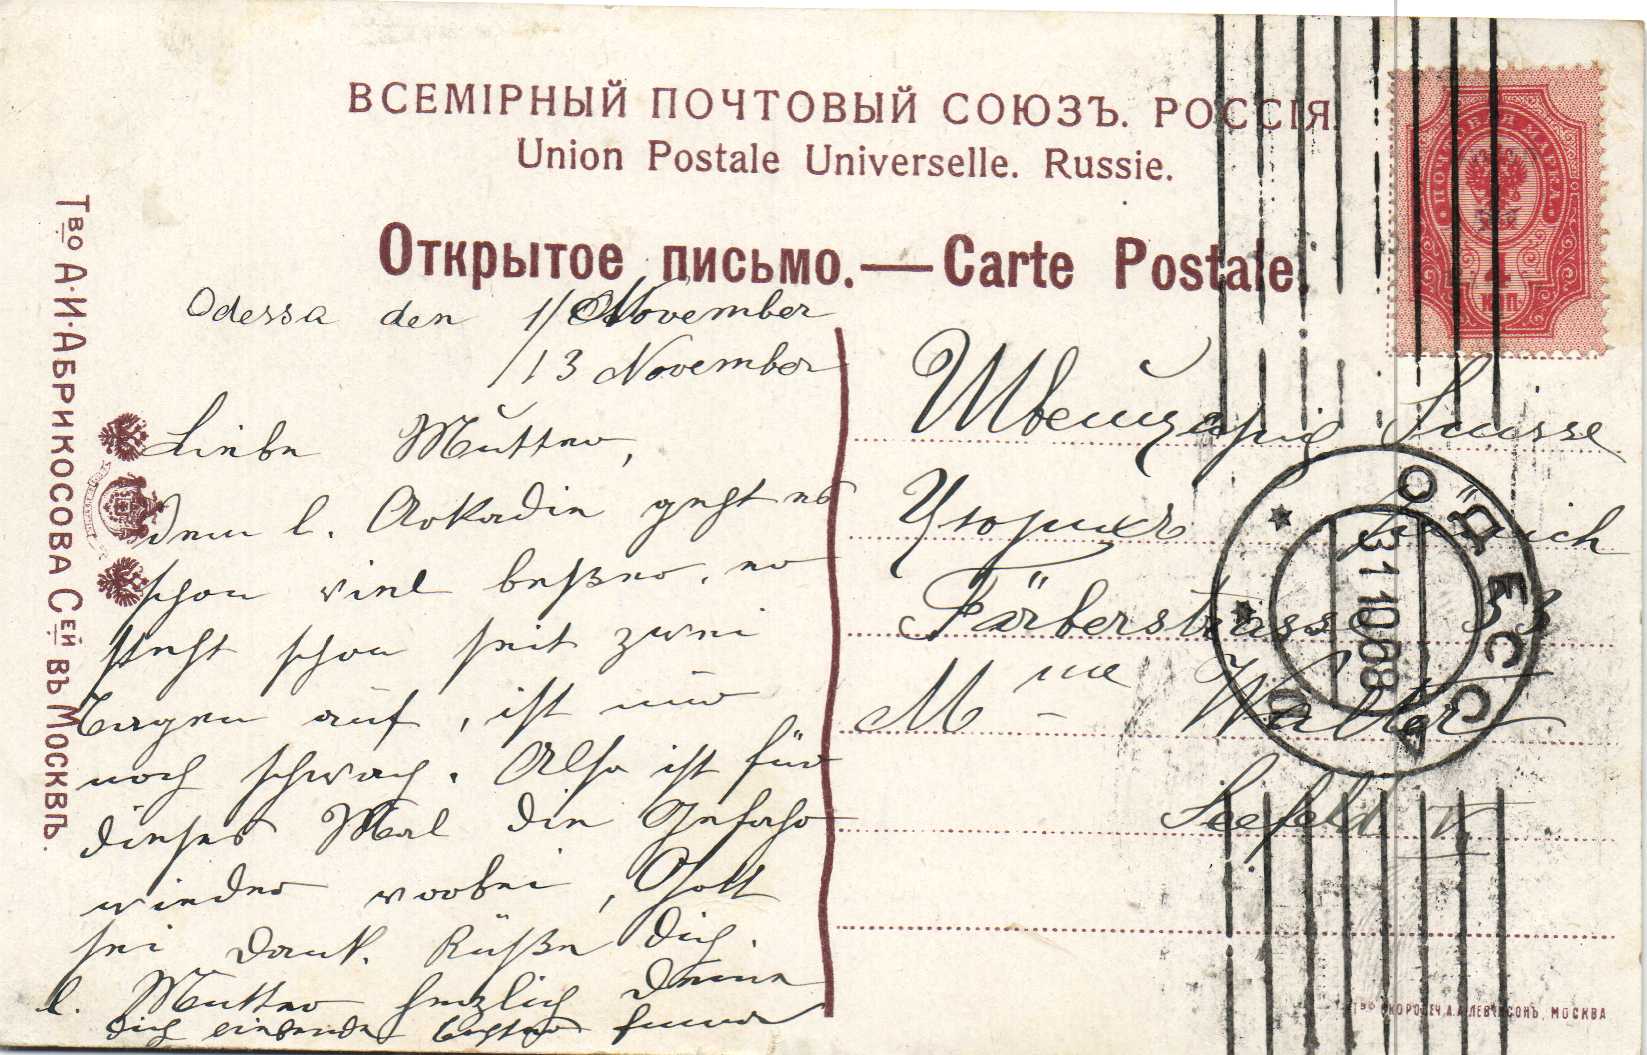 ВСЕМІРНЫЙ ПОЧТОВЫЙ СОЮЗЪ. РОССІЯ.
Union Postale Universelle. Russie.
Открытое письмо. — Carte Postale.
ПОЧТОВАЯ МАРКА
4
КОП.
Т-во А·И·Абрикосова Сей въ Москвѣ.
Odessa den 1/ November
/13 November
Liebe Mutter,
Dem l. Arkadin geht es
schon viel besser, er
steht schon seit zwei
Tagen auf, ist nur
noch schwach. Also ist für
dieses Mal die Gefahr
wieder vorbei, Gott
sei Dank. Küße Dich,
l. Mutter herzlich Deine
Dich liebende Tochter
Швейцарія Suisse
Цюрихъ Zürich
Färberstrasse 33
Mme Walter
Seefeld V.
ОДЕССА
31 10 08
Т-во СКОРОПЕЧ. А.А.ЛЕВЕНСОНЪ, МОСКВА